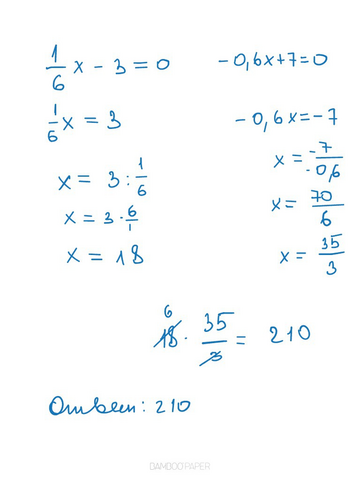 1/6 x - 3 = 0
1/6 x = 3
x = 3 : 1/6
x = 3 · 6/1
x = 18
- 0,6x+7=0
- 0,6x=-7
x = -7/-0,6
x = 70/6
x = 35/3
6
18 · 35/3 = 210
Ответ: 210
BAMBOO PAPER